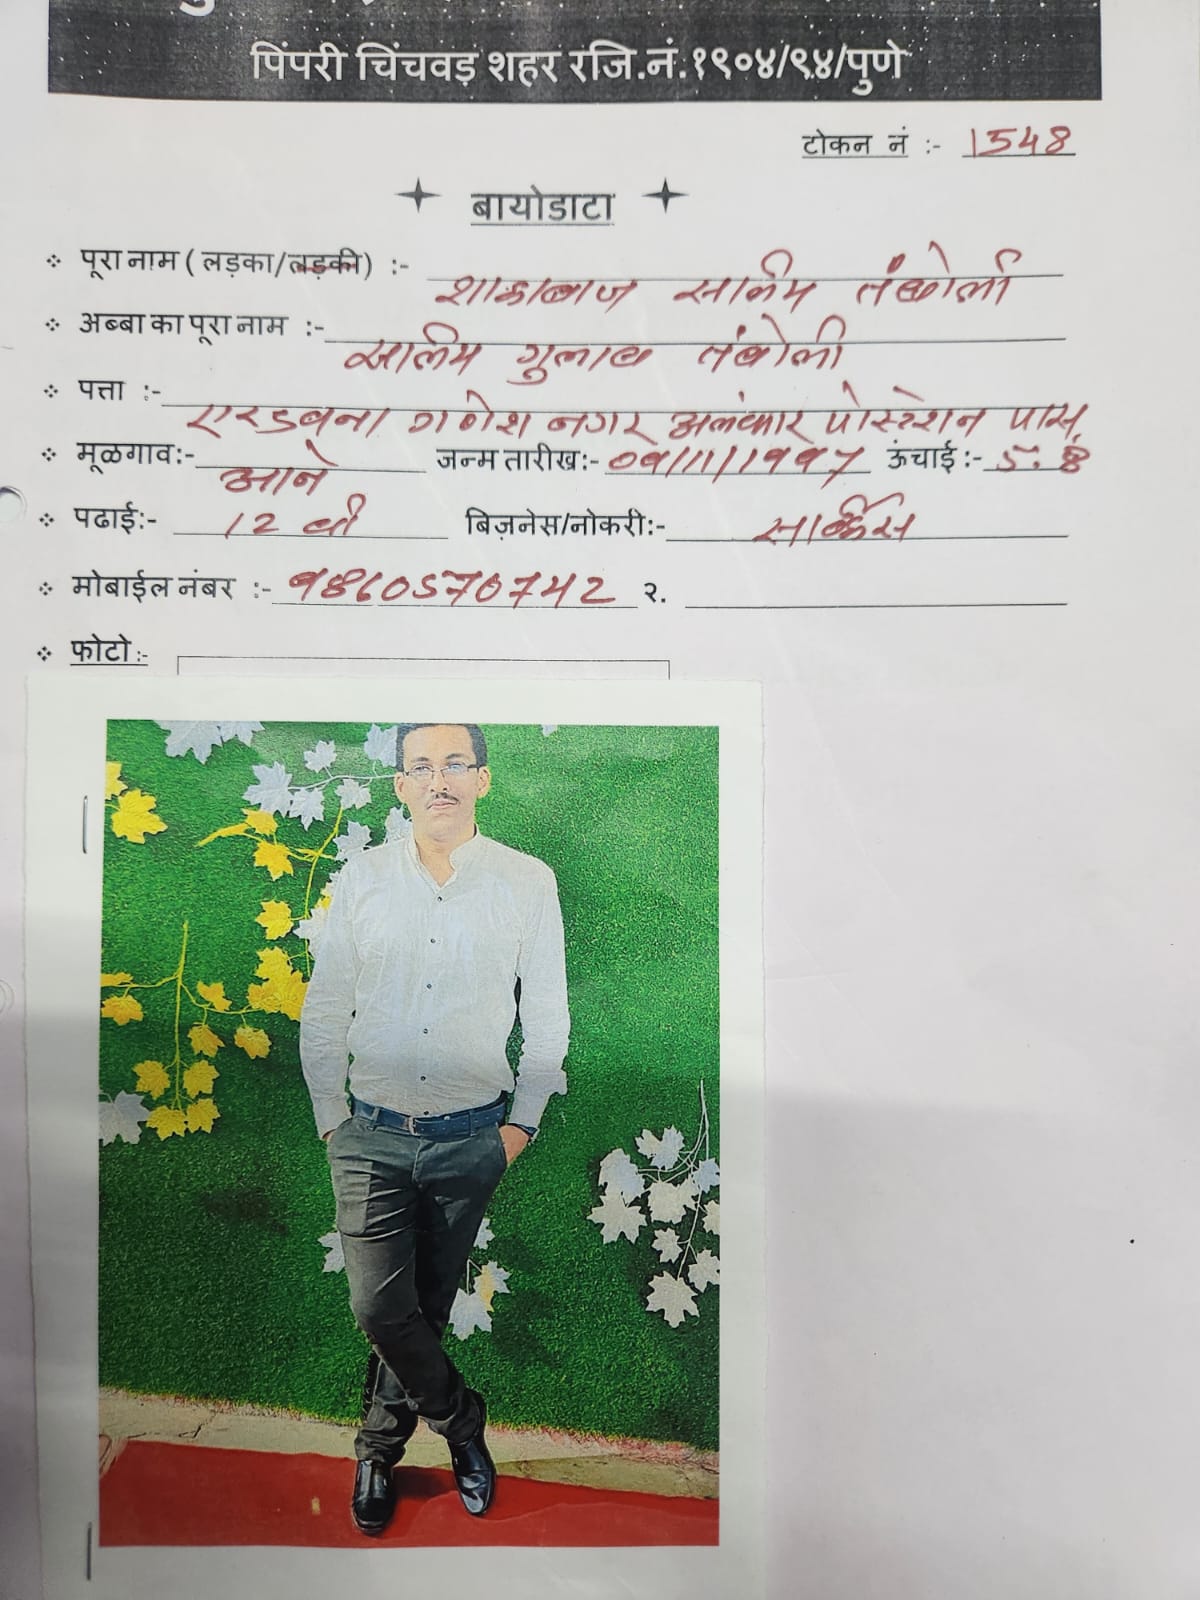 पिंपरी चिंचवड़ शहर रजि.नं.१९०४/९४/पुणे
टोकन नं :- 1548
बायोडाटा
पूरा नाम ( लड़का/लड़की) :- शाहाबाज सालिम तंबोली
अब्बा का पूरा नाम :- सालिम गुलाब तंबोली
पत्ता :- एरंडवना गणेश नगर अलंकार पो स्टेशन पास
मूळगाव:- जन्म तारीख:- ०९/११/१९९७ ऊंचाई :- 5.8
पढाई:- 12 वी बिज़नेस/नोकरी:-
मोबाईल नंबर :- ९8605७0७42 २.
फोटो :-